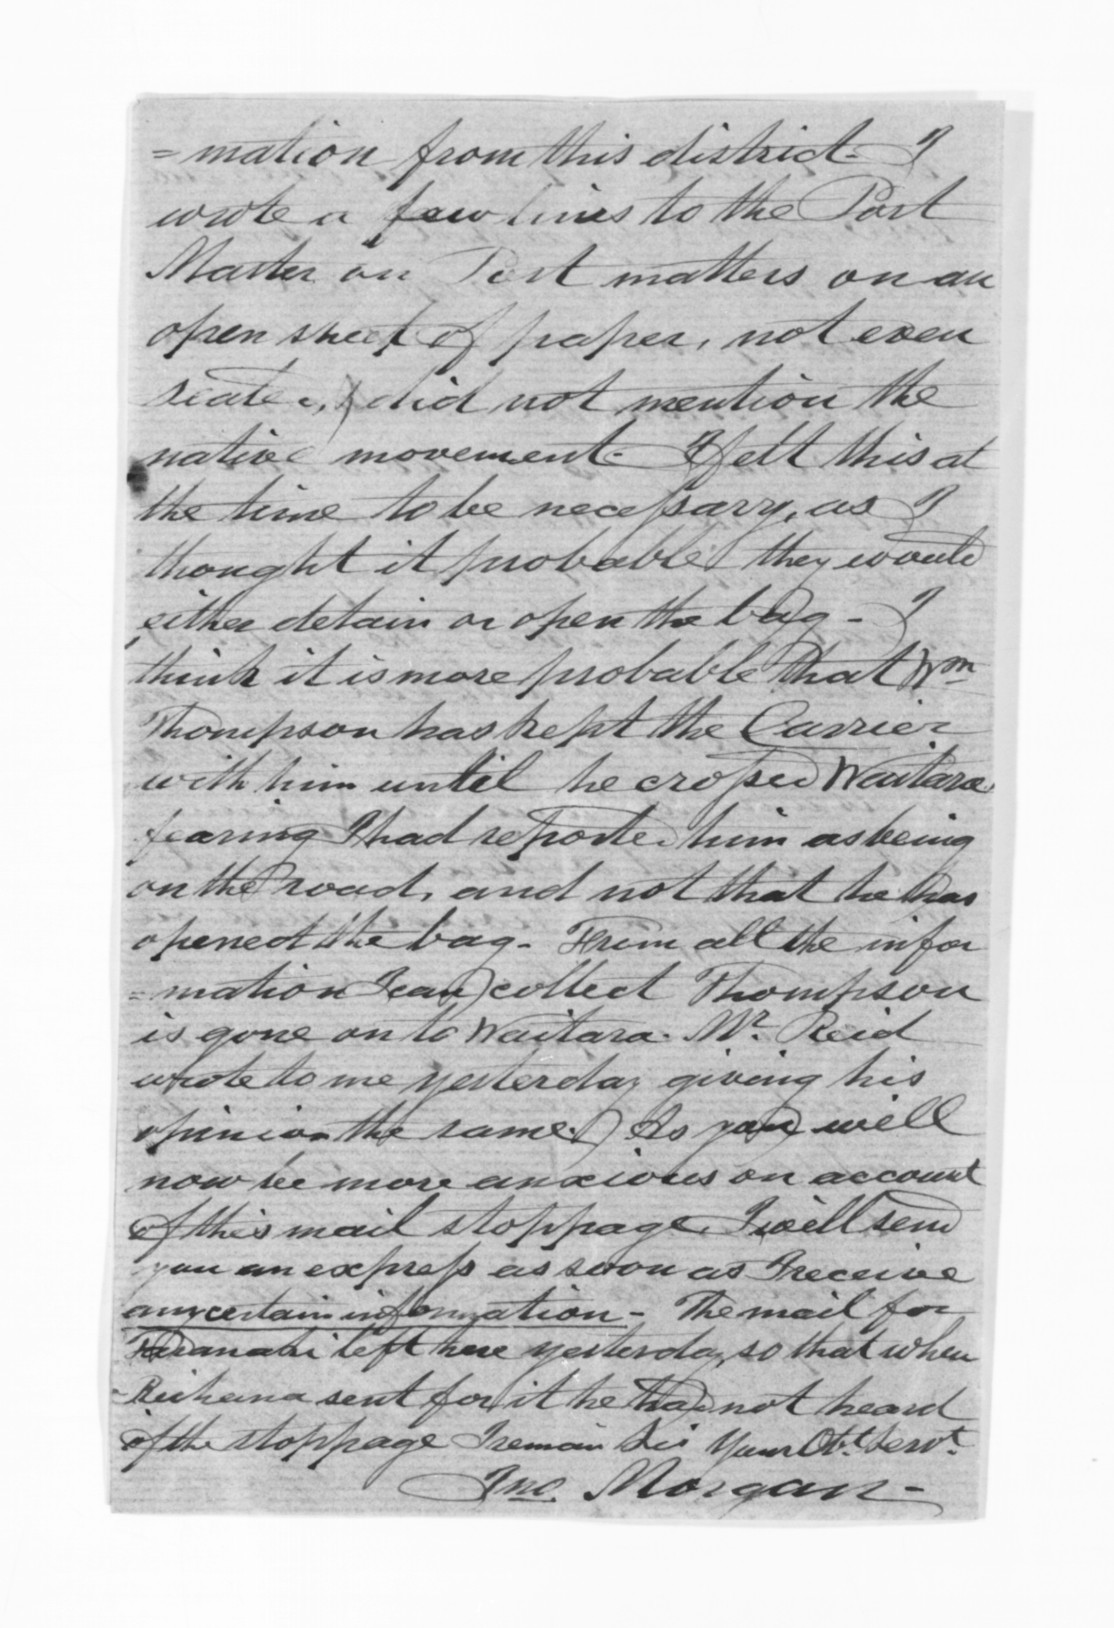 = mation from this district. I
wrote a few lines to the Post
Master on Post matters on an
open sheet of paper, not even
sealed, & did not mention the
native movement. I felt this at
the time to be necessary, as I
thought it probable they would
either detain or open the bag - I
think it is more probable that Wm
Thompson has kept the Carrier
with him until he crossed Waitara
fearing I had reported him as being
on the road, and not that he has
opened the bag. From all the infor
= mation I can collect Thompson
is gone on to Waitara. Mr. Reid
wrote to me yesterday giving his
opinion the same. As you will
now be more anxious on account
of this mail stoppage I will send
you an express as soon as I receive
any certain information - The mail for
Taranaki left here yesterday so that when
Reihana sent for it he had not heard
of the stoppage I remain Sir Your Obt. Servt.
Jno. Morgan -